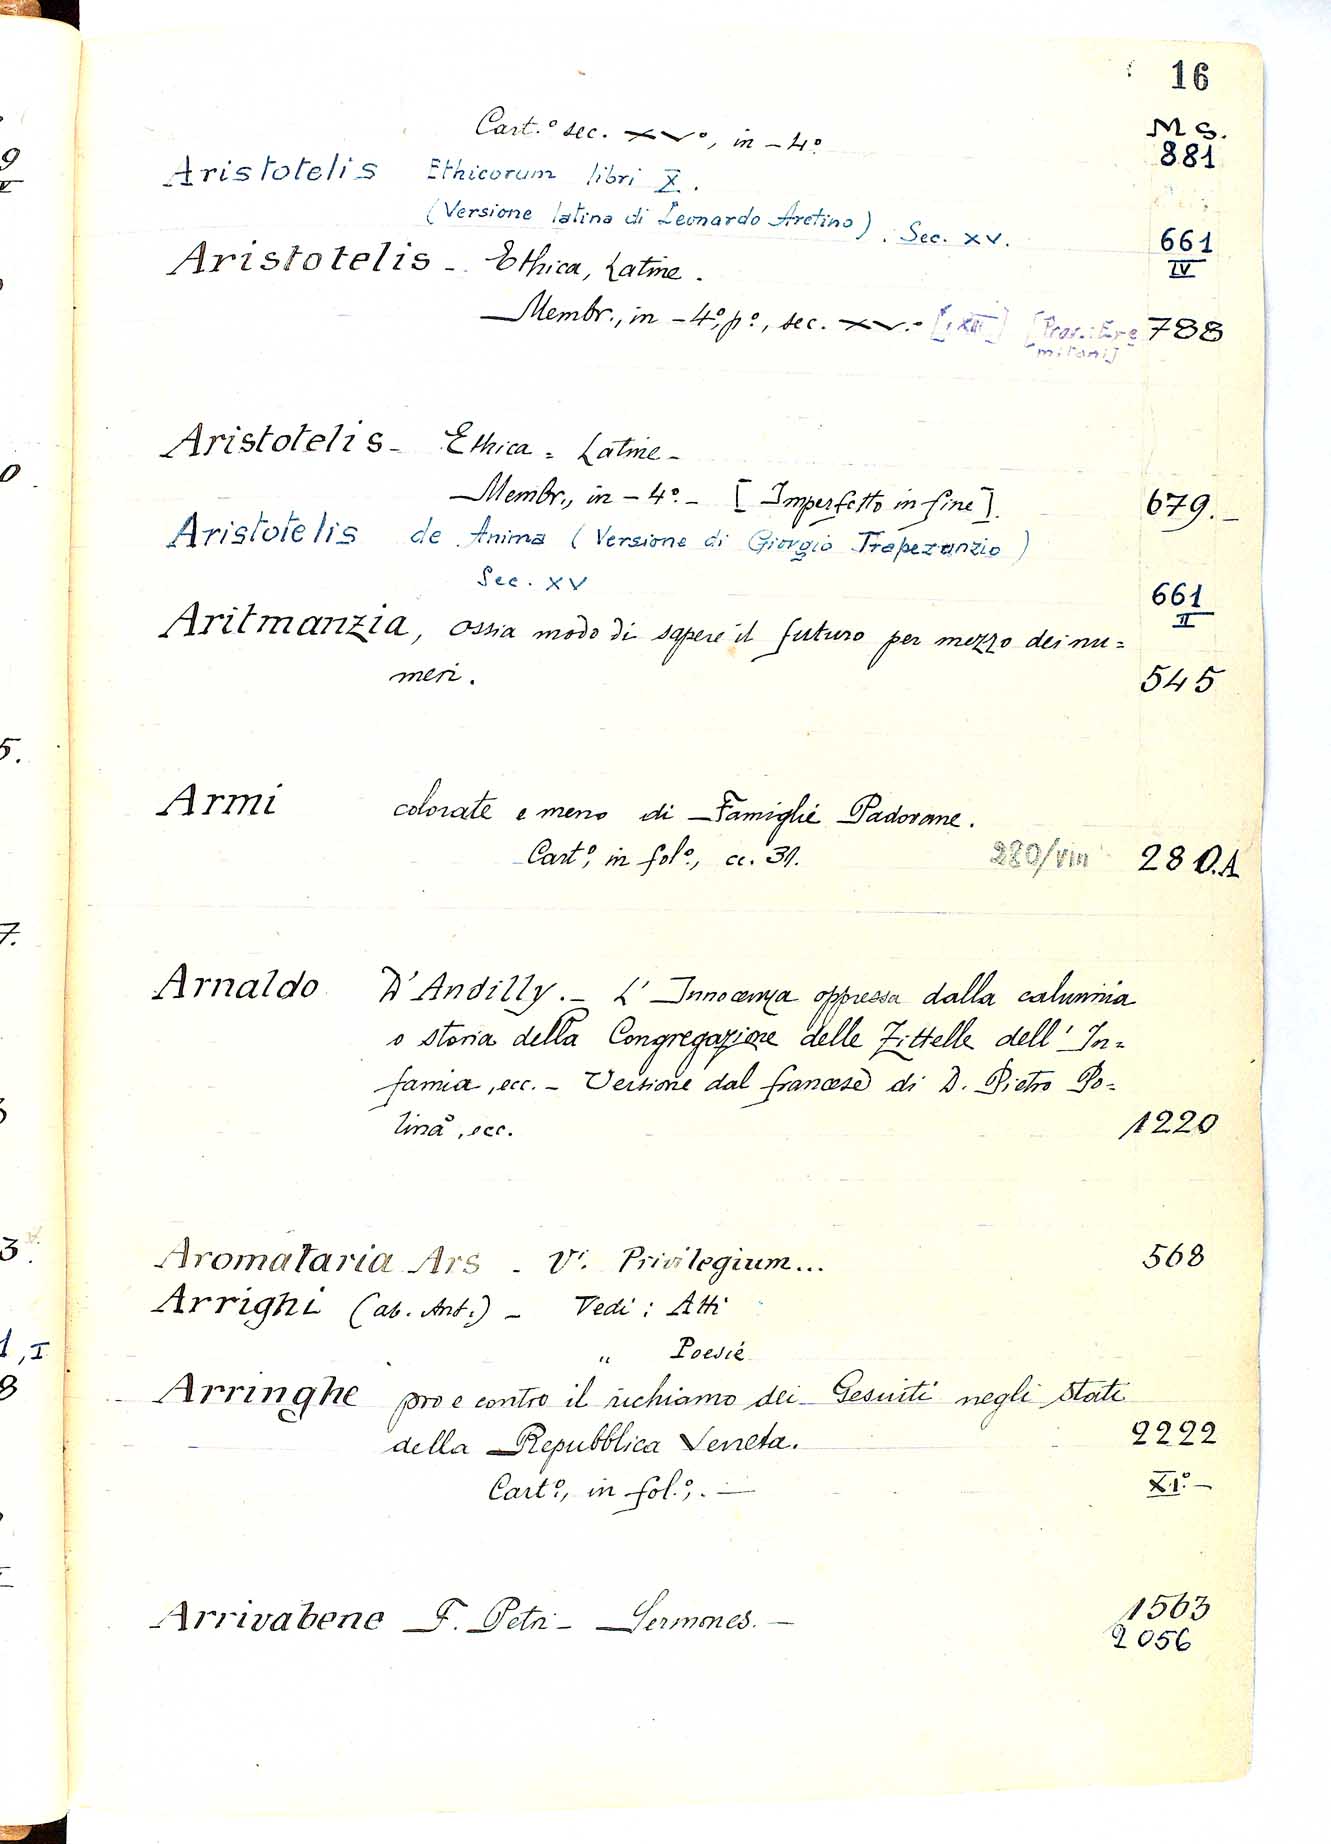 16
Cart.º sec. XVº, in-4º.
MS.
881
Aristotelis Ethicorum libri X.
(Versione latina di Leonardo Aretino). Sec. XV.
661
IV
Aristotelis - Ethica, Latine.
Membr., in-4º, pº, sec. XV.º [XIII] [Prov.: Ere 788
mitani]
Aristotelis - Ethica = Latine -
Membr., in-4º.- [Imperfetto in fine]. 679.-
Aristotelis de Anima (Versione di Giorgio Trapezunzio)
Sec. XV
661
II
Aritmanzia, ossia modo di sapere il futuro per mezzo dei nu=
meri. 545
Armi colorate e meno di Famiglie Padovane.
Cartº, in folº., cc. 31. 280/VIII 280.A
Arnaldo D'Andilly.- L'Innocenza oppressa dalla calunnia
o storia della Congregazione delle Zittelle dell'In=
famia, ecc. - Versione dal francese di D. Pietro Po=
linº, ecc. 1220
Aromataria Ars - Vi. Privilegium... 568
Arrighi (ab. Ant.) - Vedi: Atti
" Poesie
Arringhe pro e contro il richiamo dei Gesuiti negli Stati
della Repubblica Veneta. 2222
Cartº, in fol.º, .- XI.º-
Arrivabene F. Petri - Sermones. - 1563
2056